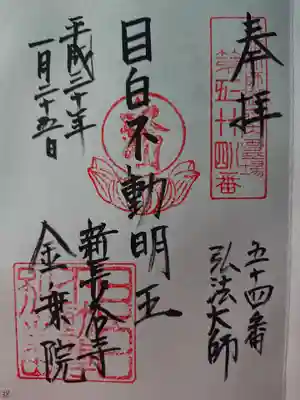 奉拝
第五十四番
五十四番
弘法大師
目白不動明王
新長谷寺
金乗院
平成二十年
一月二十五日